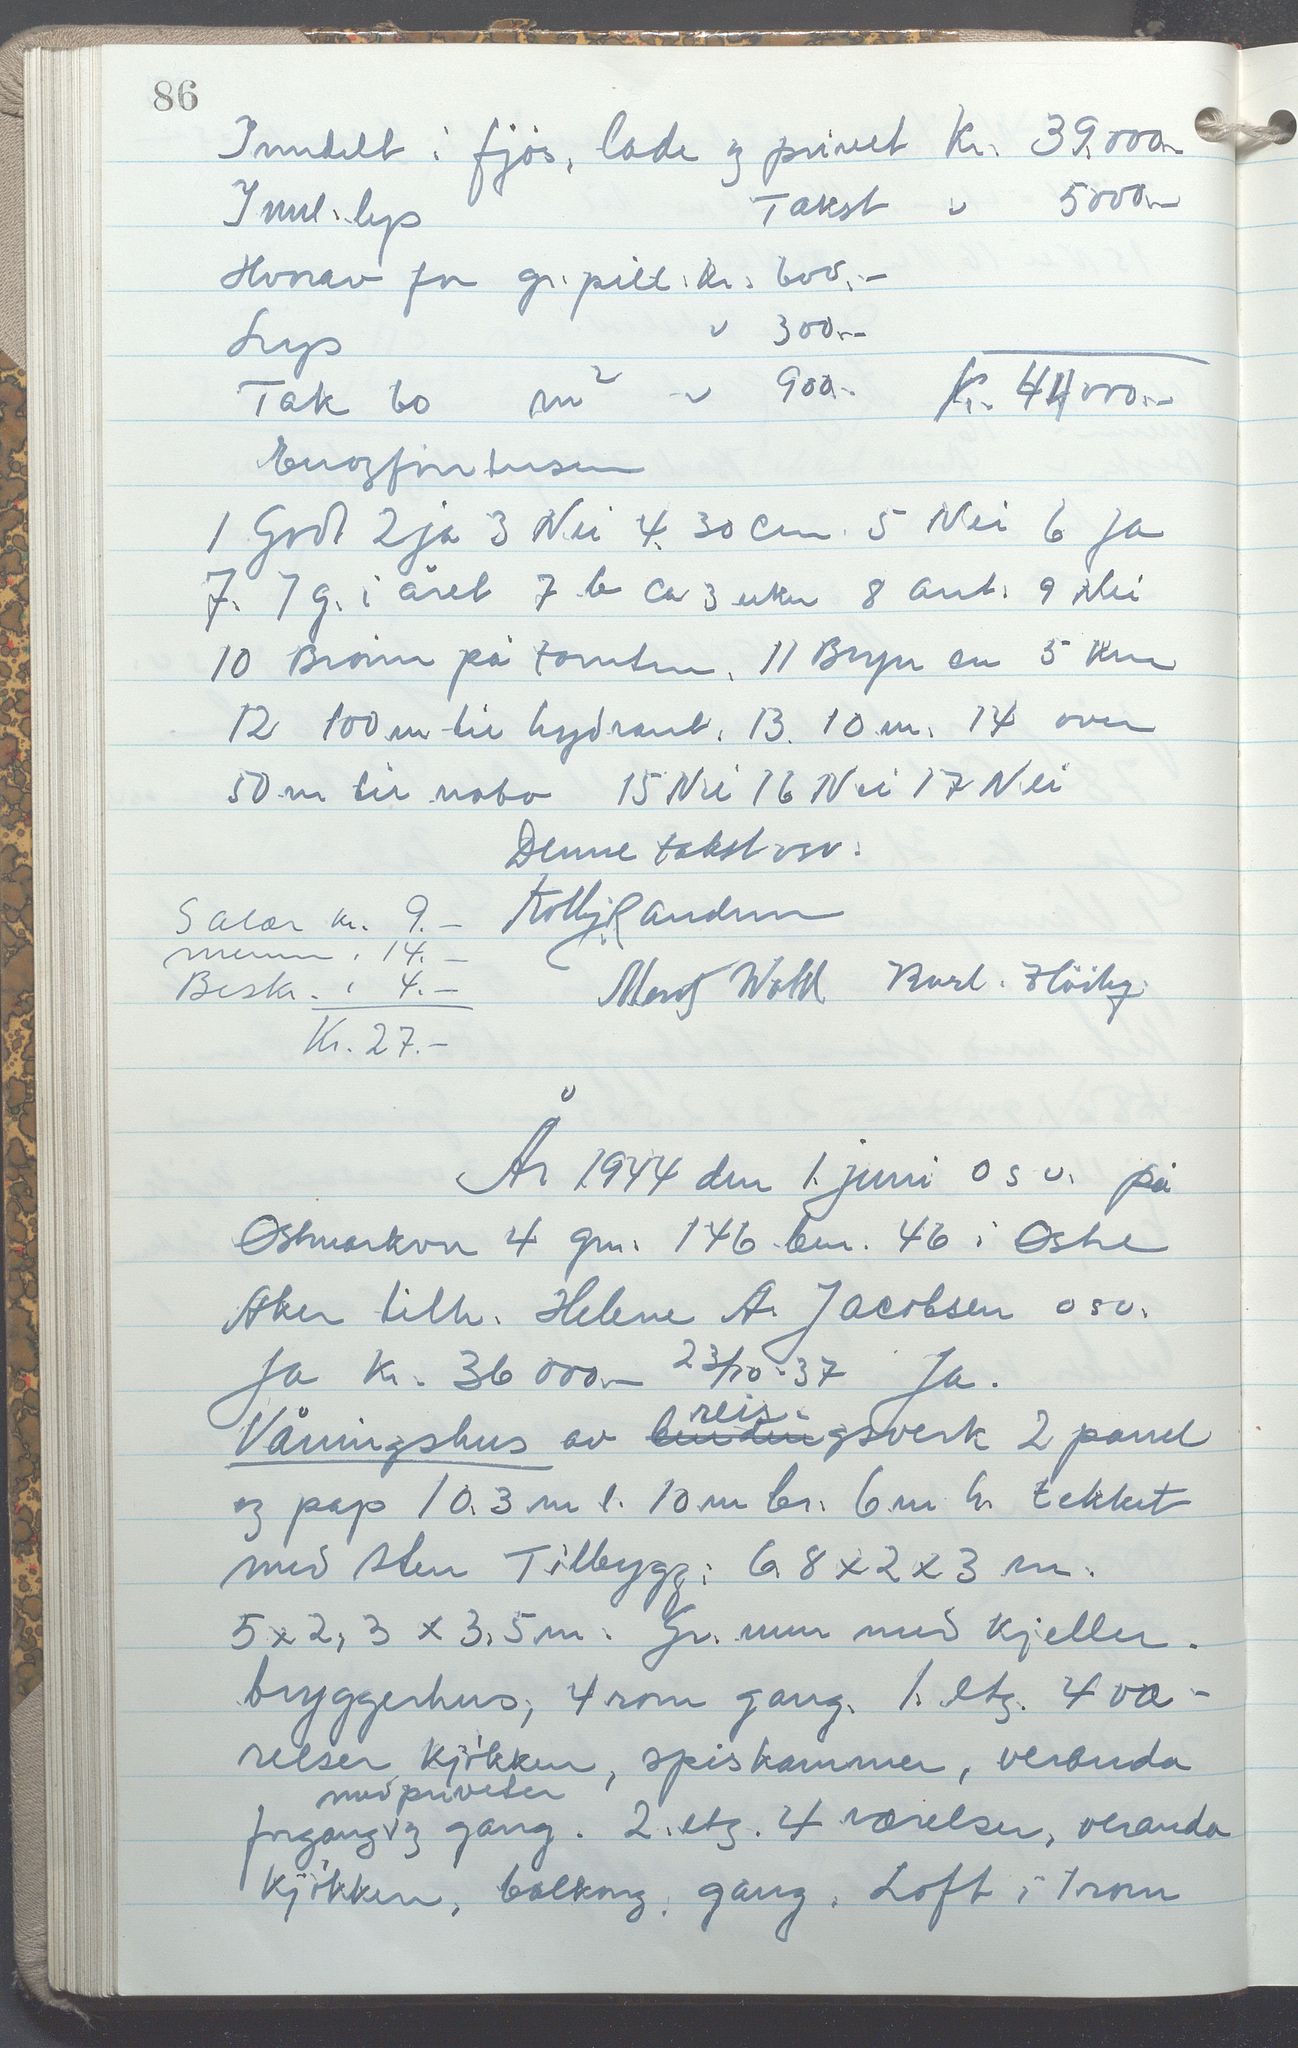 86
Inndelt i fjøs, lade og privet Kr. 39.000.-
Innl. lys Takst " 5000.-
Hvorav for gr. pill. kr. 600.-
Lys " 300.-
Tak 60 m² " 900.- Kr. 44000.-
1 Godt 2 ja 3 Nei 4. 30 cm. 5 Nei 6 Ja
7. 1 g. i året 7 b ca 3 uker 8 ant. 9 Nei
10 Brønn på tomten. 11 Bryn en 5 km
12 100 m til hydrant. 13. 10 m. 14 over
50 m til nabo 15 Nei 16 Nei 17 Nei
Denne takst osv.
Salær kr. 9.-
menn " 14.-
Beskr. " 4.-
Kr. 27.-
År 1944 den 1. juni osv. på
Østmarkvn 4 gnr. 146 bnr. 46 i Østre
Aker tilh. Helene A. Jacobsen osv.
Ja Kr. 36000.- 23/10-37 Ja.
reis-
Våningshus av bindingsverk 2 panel
og pap 10.3 m l. 10 m br. 6 m h. tekket
med sten Tilbygg: 6.8 x 2 x 3 m.
5 x 2,3 x 3,5 m. Gr. mur med kjeller.
bryggerhus, 4 rom gang. 1. etg. 4 væ-
relser, kjøkken, spiskammer, veranda
med priveter
forgang og gang. 2. etg. 4 værelser, veranda
kjøkken, balkong, gang. Loft i 1 rom